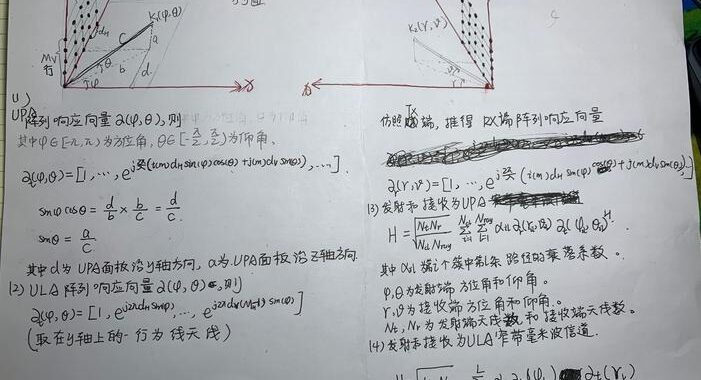 K₁(φ,θ)
dH
C
a
θ
b
d
φ
Mv
行
y
(1)
UPA
阵列响应向量 a(φ,θ), 则
其中 φ∈[-π,π) 为方位角, θ∈[-π/2, π/2) 为仰角.
a_t(φ,θ) = [1, ⋯, e^{j2π/λ(i(m)d_H sin(φ)cos(θ)+j(m)d_V sinθ)}, ⋯].
sinφ cosθ = d/b × b/c = d/c
sinθ = a/c
其中 d 为 UPA面板沿y轴方向, a为UPA面板沿Z轴方向.
(2) ULA 阵列响应向量 a(φ,θ) 则
a_t(φ,θ) = [1, e^{j2πd_H sinφ}, ⋯, e^{j2πd_H(M_H-1) sin(φ)}]
(取在y轴上的一行为 线天线)
K₂(γ,ϑ)
仿照Tx端, 推得 RX端阵列响应向量
a_r(γ,ϑ) = [1, ⋯, e^{j2π/λ(i(m)d_H sin(φ)cos(θ)+j(m)d_V sin(θ))},]
(3) 发射和接收为UPA
H = √(NtNr/(Ncl Nray)) Σ_{i=1}^{Ncl} Σ_{l=1}^{Nray} α_il a_r(γ_il,ϑ_il) a_t(φ_il,θ_il)^H.
其中α_il 第i个簇中第l条 路径的衰落系数。
φ,θ为发射端 方位角和仰角。
γ,ϑ为接收端方位角和仰角。
Nt, Nr 为发射端天线数 和 接收端天线数。
(4) 发射和接收为ULA 窄带毫米波信道.